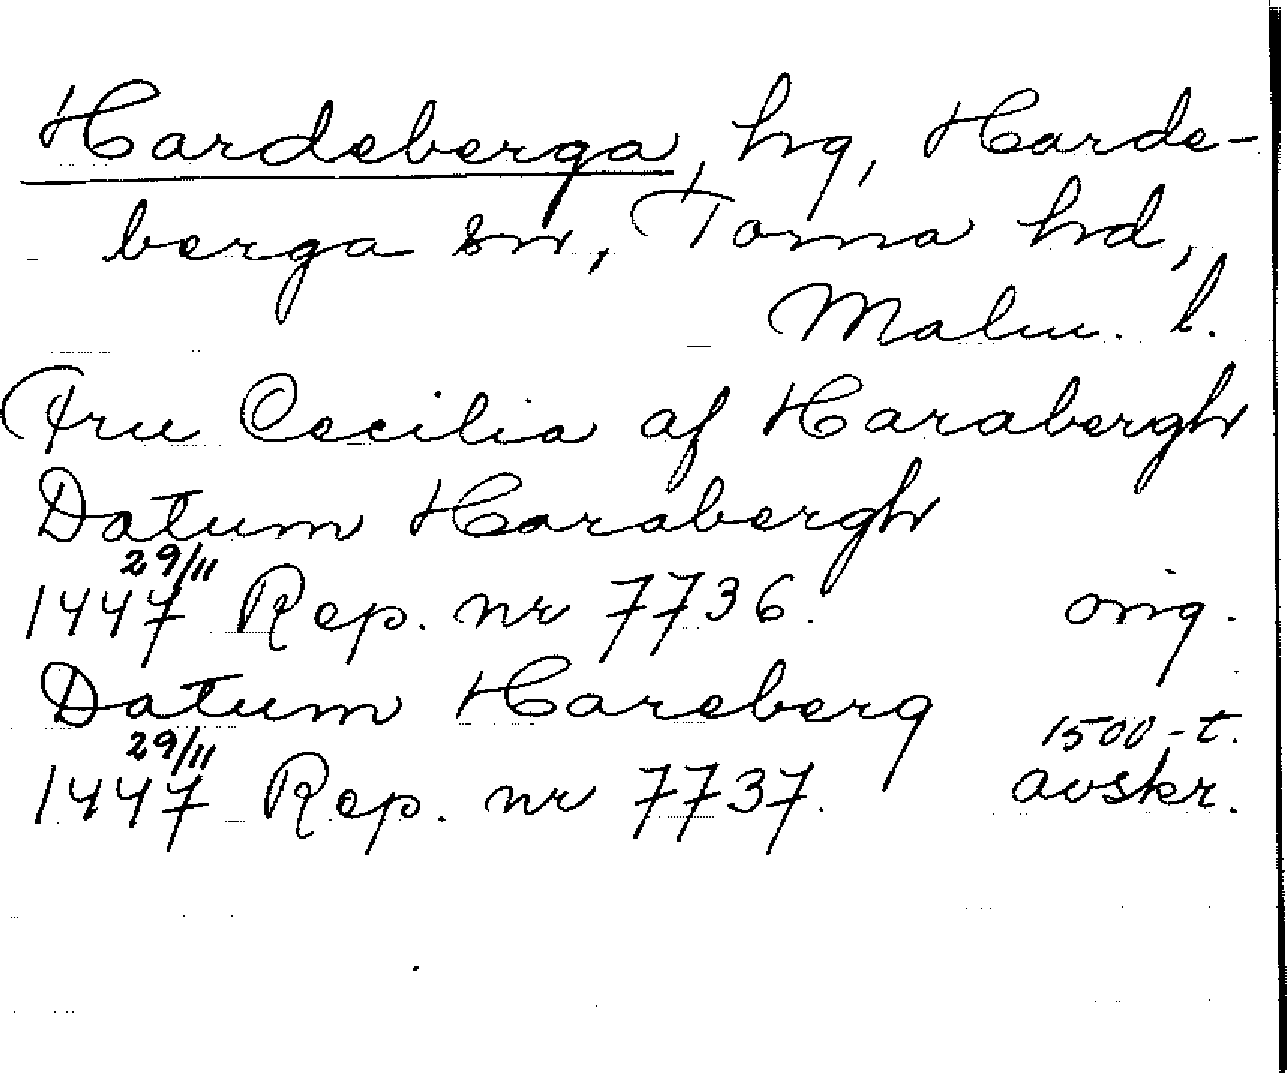 Hardeberga, hg, Harde-
berga sn, Torna hd,
Malm. l.
Fru Cecilia af Harabergh
Datum Harabergh
29/11
1447 Rep. nr 7736. orig.
Datum Hareberg
29/11 1500-t.
1447 Rep. nr 7737. avskr.